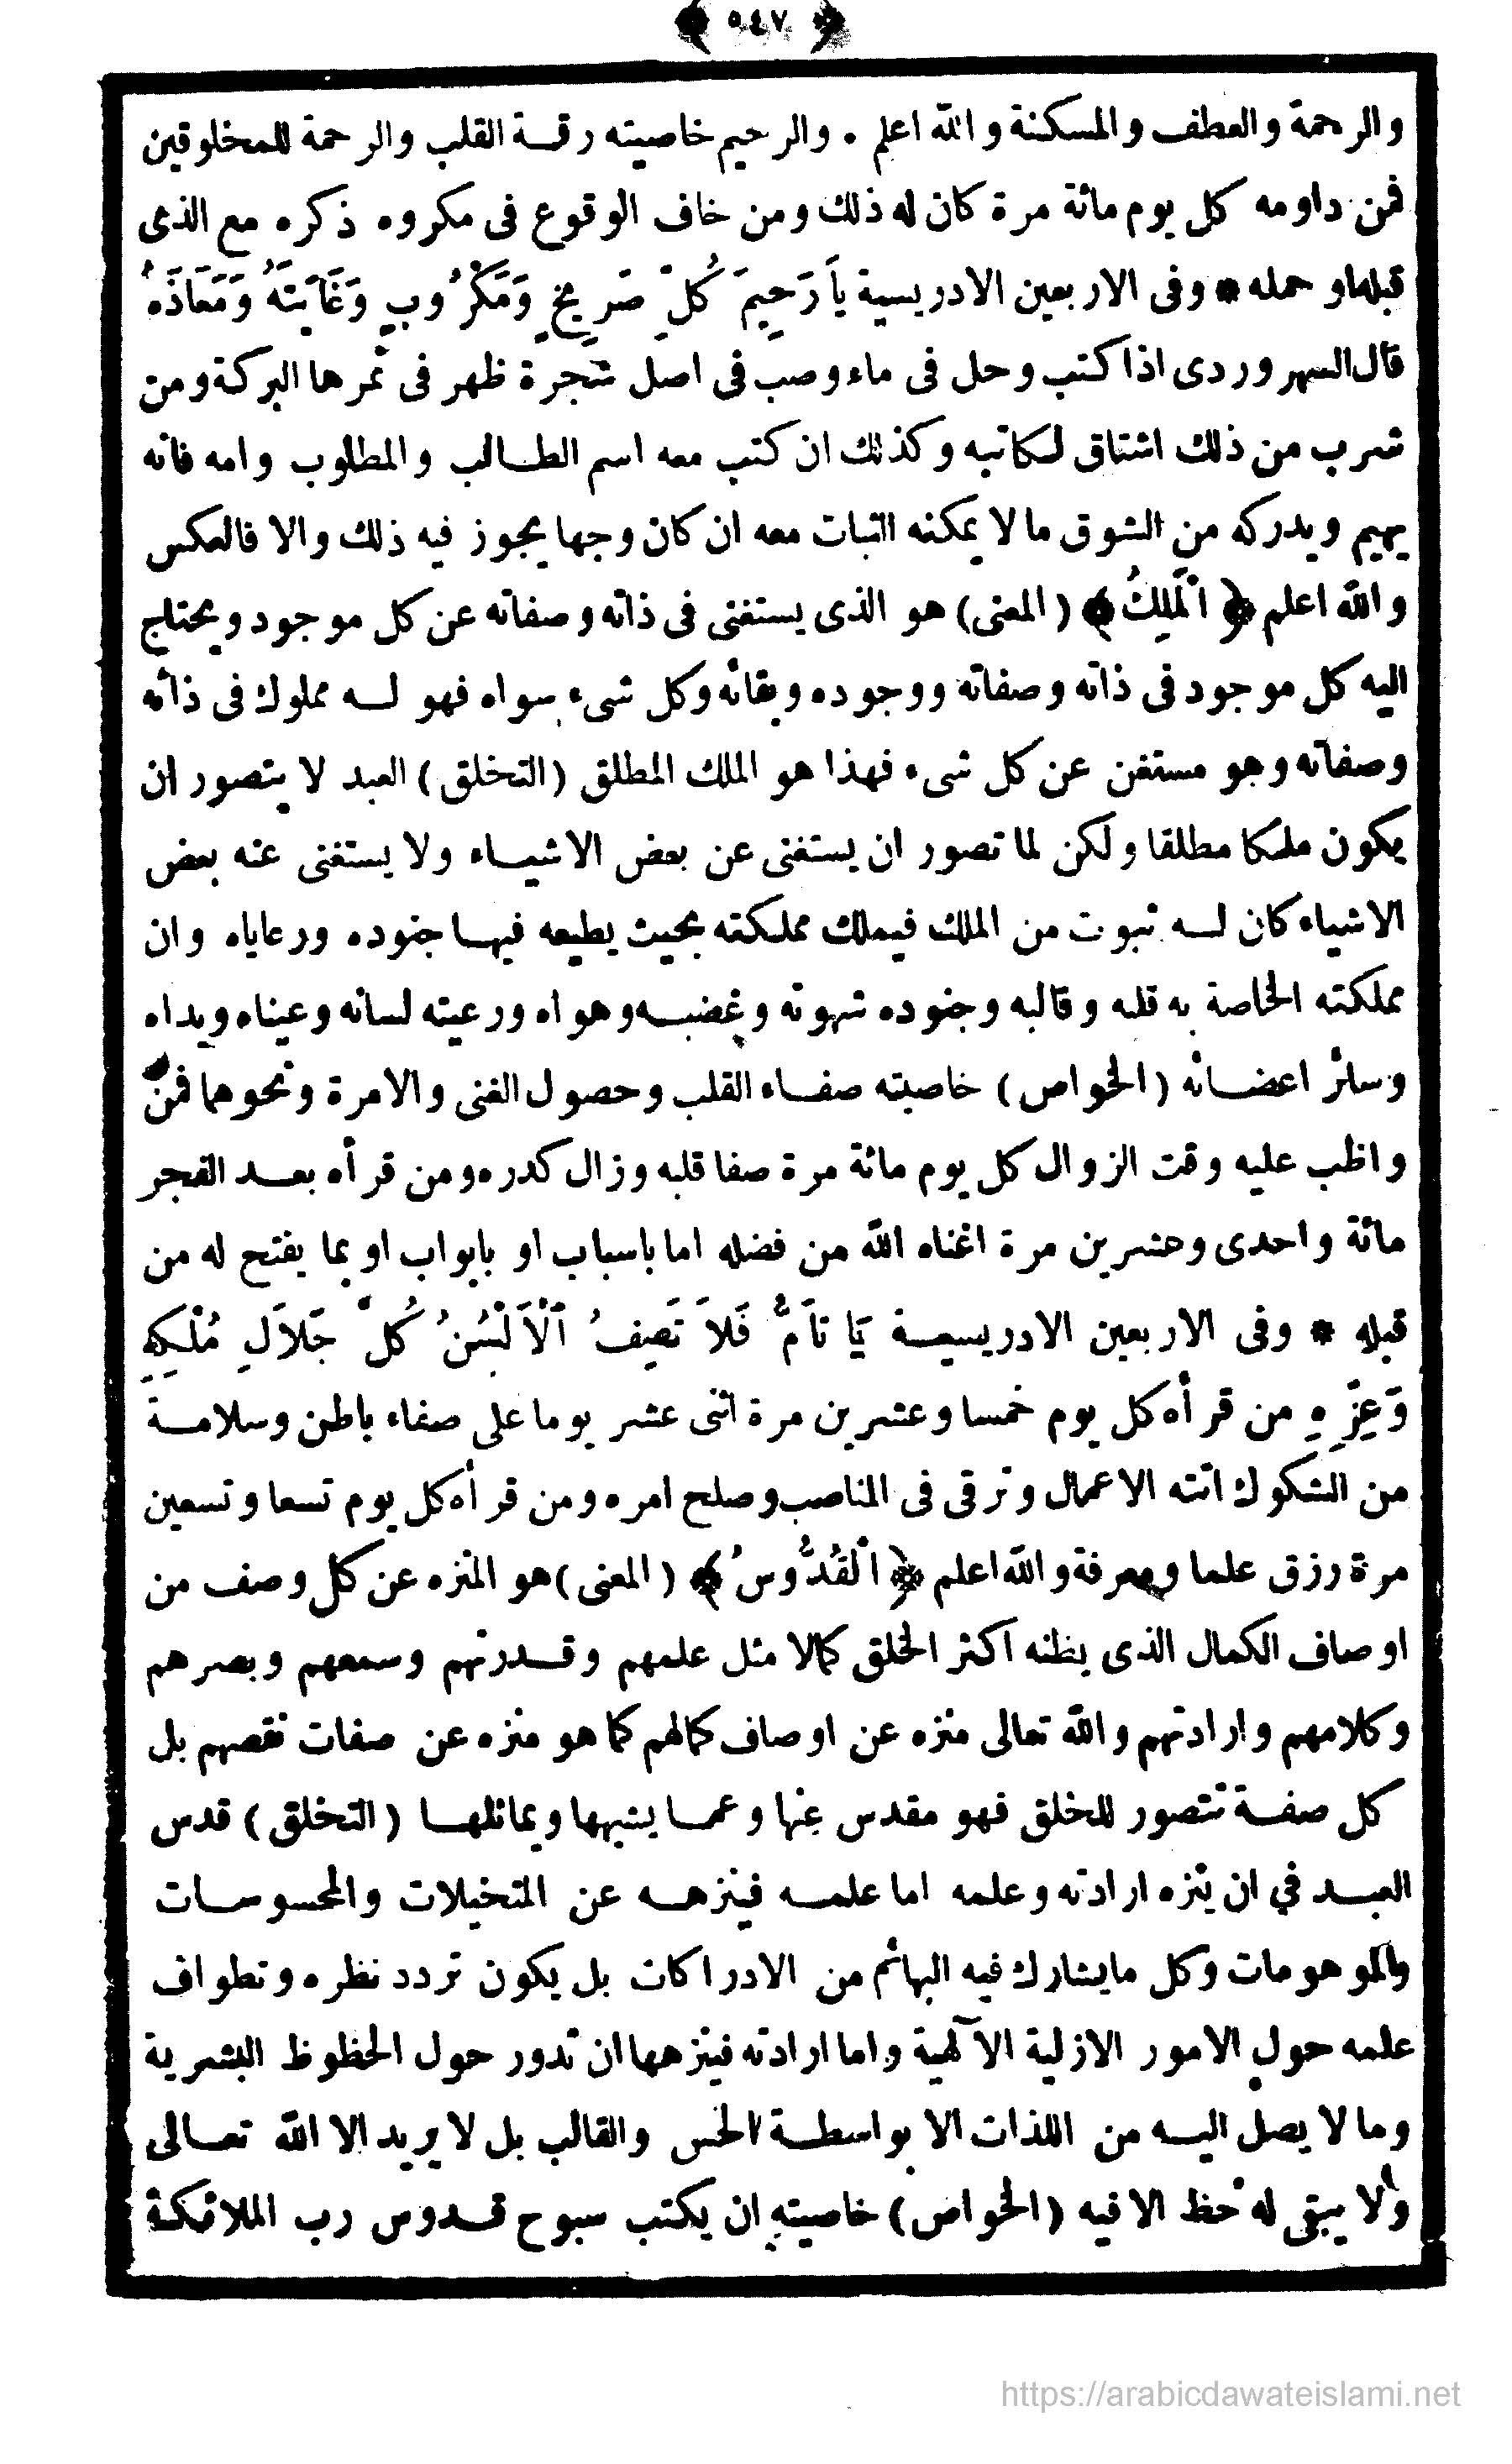 ﴿ ٥٤٧ ﴾
والرحمة والعطف والمسكنة والله اعلم . والرحيم خاصيته رقة القلب والرحمة للمخلوقين
فمن داومه كل يوم مائة مرة كان له ذلك ومن خاف الوقوع فى مكروه ذكره مع الذى
قبله او حمله * وفى الاربعين الادريسية يَا رَحِيمَ كُلِّ صَرِيخٍ وَمَكْرُوبٍ وَغَايَتَهُ وَمَعَاذَهُ
قال السهروردى اذا كتب وحل فى ماء وصب فى اصل شجرة ظهر فى ثمرها البركة ومن
شرب من ذلك اشتاق لكاتبه وكذلك ان كتب معه اسم الطالب والمطلوب وامه فانه
يهيم ويدركه من الشوق ما لا يمكنه الثبات معه ان كان وجها يجوز فيه ذلك والا فالعكس
والله اعلم ﴿ اَلْمَلِكُ ﴾ (المعنى) هو الذى يستغنى فى ذاته وصفاته عن كل موجود ويحتاج
اليه كل موجود فى ذاته وصفاته ووجوده وبقائه وكل شىء سواه فهو له مملوك فى ذاته
وصفاته وهو مستغن عن كل شىء فهذا هو الملك المطلق (التخلق) العبد لا يتصور ان
يكون ملكا مطلقا ولكن لما تصور ان يستغنى عن بعض الاشياء ولا يستغنى عنه بعض
الاشياء كان له ثبوت من الملك فيملك مملكته بحيث يطيعه فيها جنوده ورعاياه وان
مملكته الخاصة به قلبه وقالبه وجنوده شهوته وغضبه وهواه ورعيته لسانه وعيناه ويداه
وسائر اعضائه (الخواص) خاصيته صفاء القلب وحصول الغنى والامرة ونحوهما فمن
واظب عليه وقت الزوال كل يوم مائة مرة صفا قلبه وزال كدره ومن قرأه بعد الفجر
مائة واحدى وعشرين مرة اغناه الله من فضله اما باسباب او بابواب او بما يفتح له من
قبله * وفى الاربعين الادريسية يَا تَامُّ فَلاَ تَصِفُ اَلْاَلْسُنُ كُلَّ جَلاَلِ مُلْكِهِ
وَعِزِّهِ من قرأه كل يوم خمسا وعشرين مرة اثنى عشر يوما على صفاء باطن وسلامة
من الشكوك اتته الاعمال وترقى فى المناصب وصلح امره ومن قرأه كل يوم تسعا وتسعين
مرة رزق علما ومعرفة والله اعلم ﴿ اَلْقُدُّوسُ ﴾ (المعنى) هو المنزه عن كل وصف من
اوصاف الكمال الذى يظنه اكثر الخلق كمالا مثل علمهم وقدرتهم وسمعهم وبصرهم
وكلامهم وارادتهم والله تعالى منزه عن اوصاف كمالهم كما هو منزه عن صفات نقصهم بل
كل صفة تتصور للخلق فهو مقدس عنها وعما يشبهها ويماثلها (التخلق) قدس
العبد في ان ينزه ارادته وعلمه اما علمه فينزهه عن المتخيلات والمحسوسات
والموهومات وكل ما يشارك فيه البهائم من الادراكات بل يكون تردد نظره وتطواف
علمه حول الامور الازلية الآلهية واما ارادته فينزهها ان تدور حول الحظوظ البشرية
وما لا يصل اليه من اللذات الا بواسطة الحس والقالب بل لا يريد الا الله تعالى
ولا يبقى له حظ الا فيه (الخواص) خاصيته ان يكتب سبوح قدوس رب الملائكة
https://arabicdawateislami.net